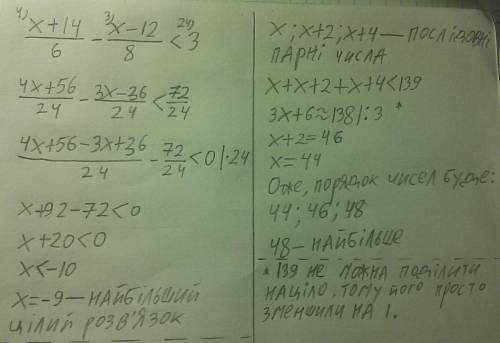 4) 3) 24)
x+14/6 - x-12/8 < 3
4x+56/24 - 3x-36/24 < 72/24
4x+56-3x+36/24 - 72/24 < 0 |·24
x+92-72<0
x+20<0
x<-10
x=-9 — найбільший
цілий розв'язок
x; x+2; x+4 — послідовні
парні числа
x+x+2+x+4<139
3x+6≈138|:3 *
x+2=46
x=44
Отже, порядок чисел буде:
44; 46; 48
48 — найбільше
* 139 не можна поділити
націло, тому його просто
зменшили на 1.